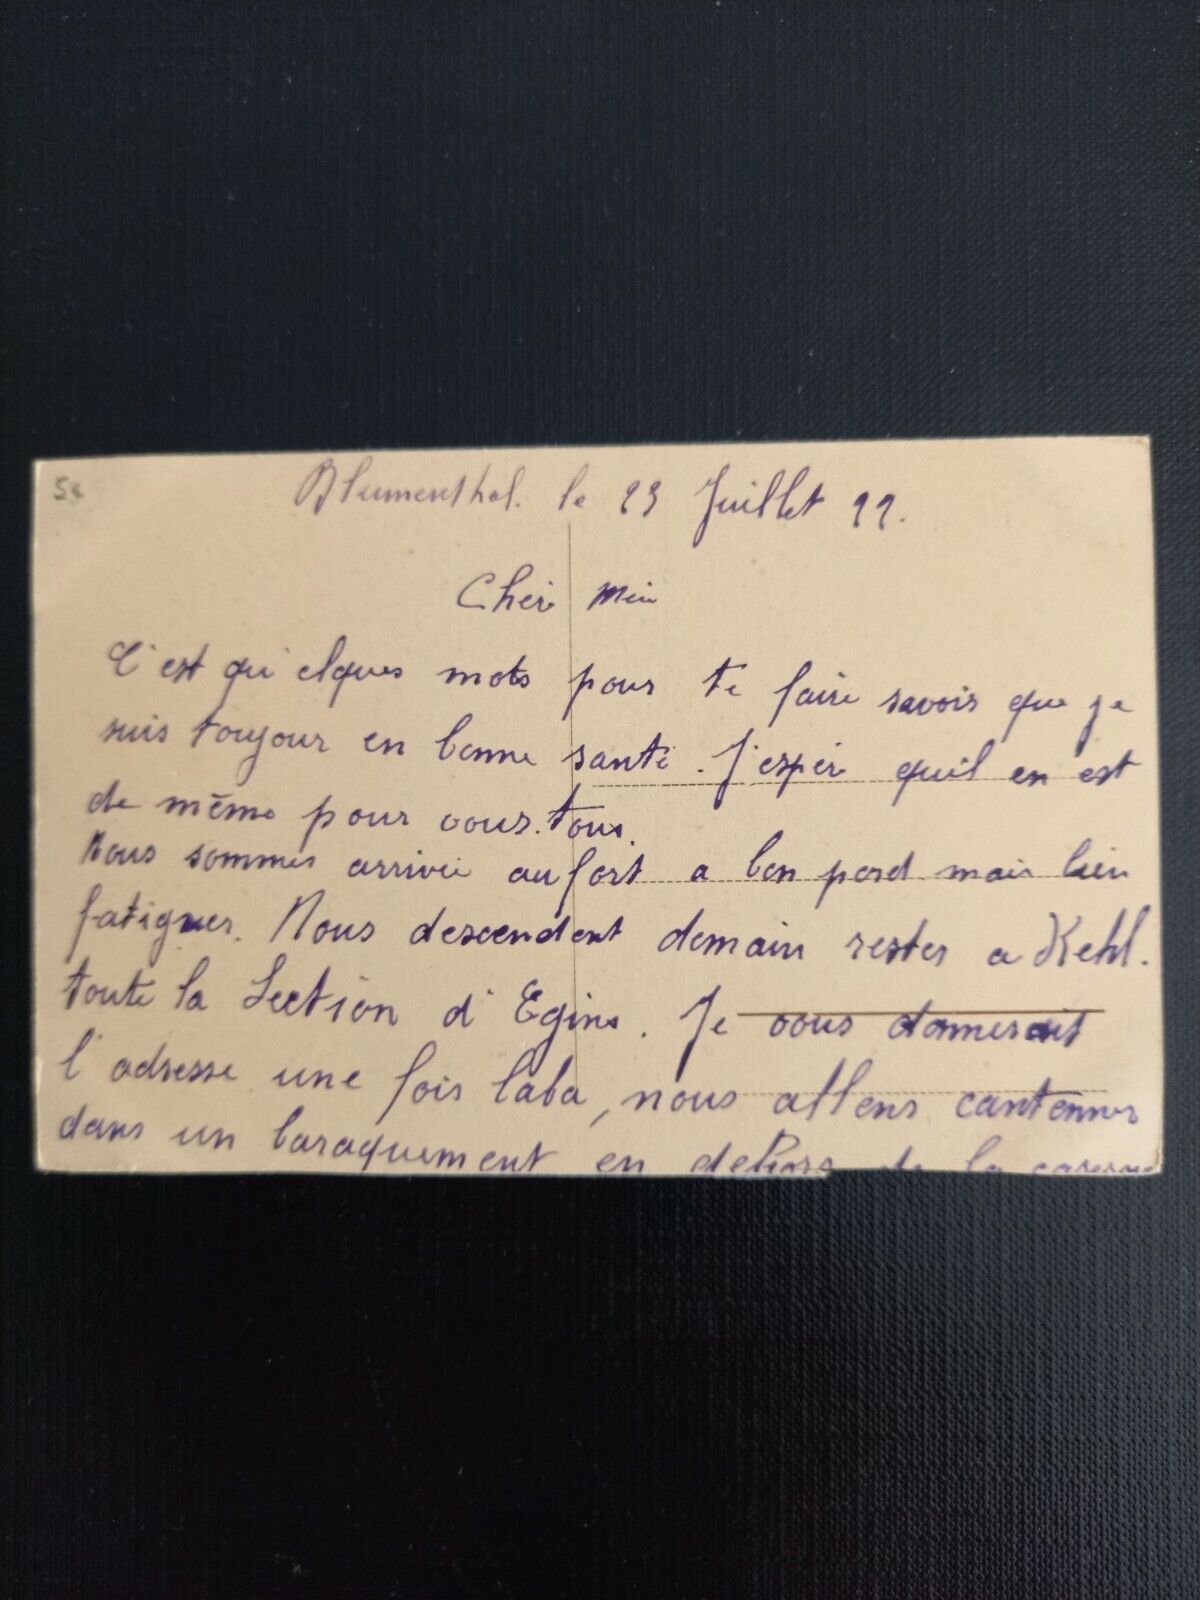 5e
Blumenthal. le 23 Juillet 22.
Cher
C'est qu'elques mots pour te faire savoir que je
suis toujour en bonne santé. J'esper quil en est
de même pour vous tous.
Nous sommes arrivée au fort a bon pord mais bien
fatiguer. Nous descendent demain rester a Kehl.
toute la Section d'Egins. Je vous donnerait
l'adresse une fois laba, nous allons cantonner
dans un baraquement en dehors de la caserne